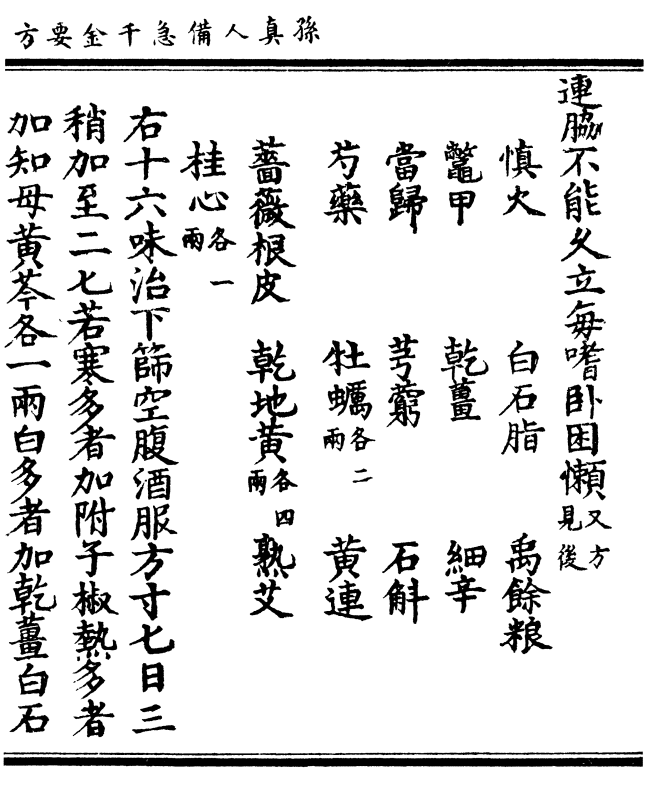 孫真人備急千金要方
連脇不能久立每嗜卧困懶又方見後
慎火 白石脂 禹餘粮
鼈甲 乾薑 細辛
當歸 芎藭 石斛
芍藥 牡蠣各二兩 黄連
薔薇根皮 乾地黄各四兩 熟艾
桂心各一兩
右十六味治下篩空腹酒服方寸匕日三
稍加至二匕若寒多者加附子椒熱多者
加知母黄芩各一兩白多者加乾薑白石